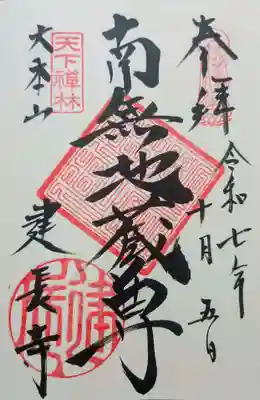 奉拝
令和七年
十月五日
南無地蔵尊
天下禅林
大本山
建長寺